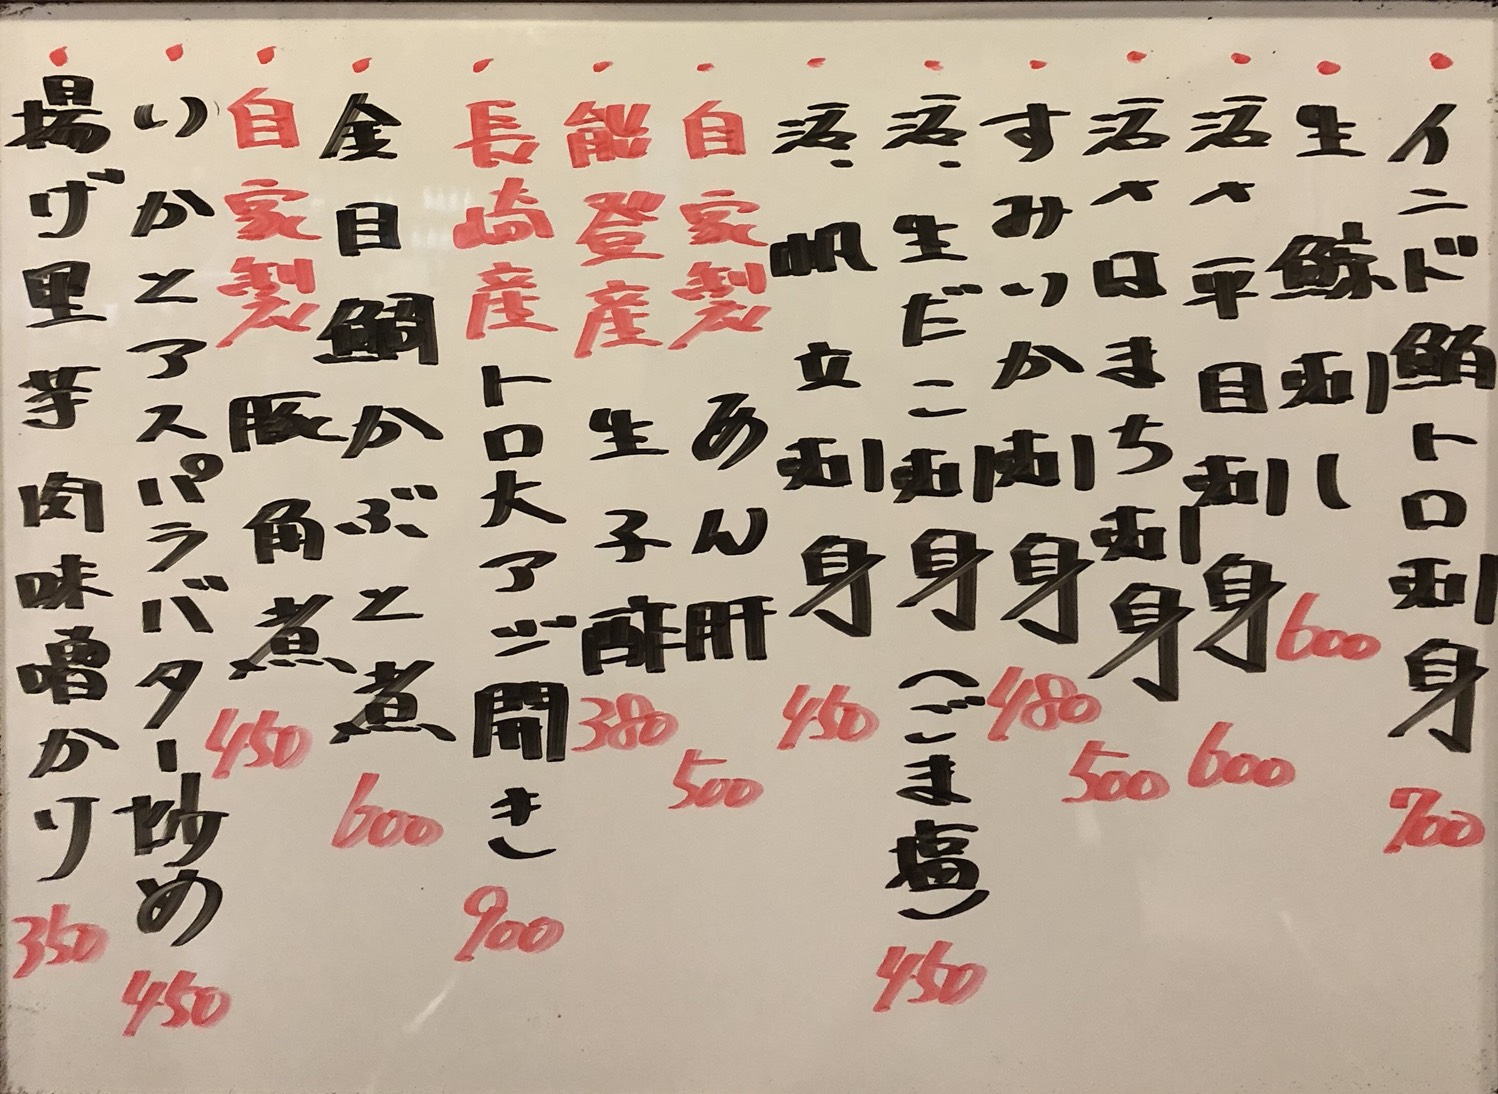 ・インド鮪トロ刺身 700
・生鯨刺し 600
・活〆平目刺身 600
・活〆はまち刺身 500
・すみいか刺身 480
・活生だこ刺身(ごま塩) 450
・活帆立刺身 450
・自家製 あん肝 500
・能登産 生子酢 380
・長崎産 トロ大アジ開き 900
・金目鯛かぶと煮 600
・自家製 豚角煮 450
・いかとアスパラバター炒め 450
・揚げ里芋肉味噌かり 350